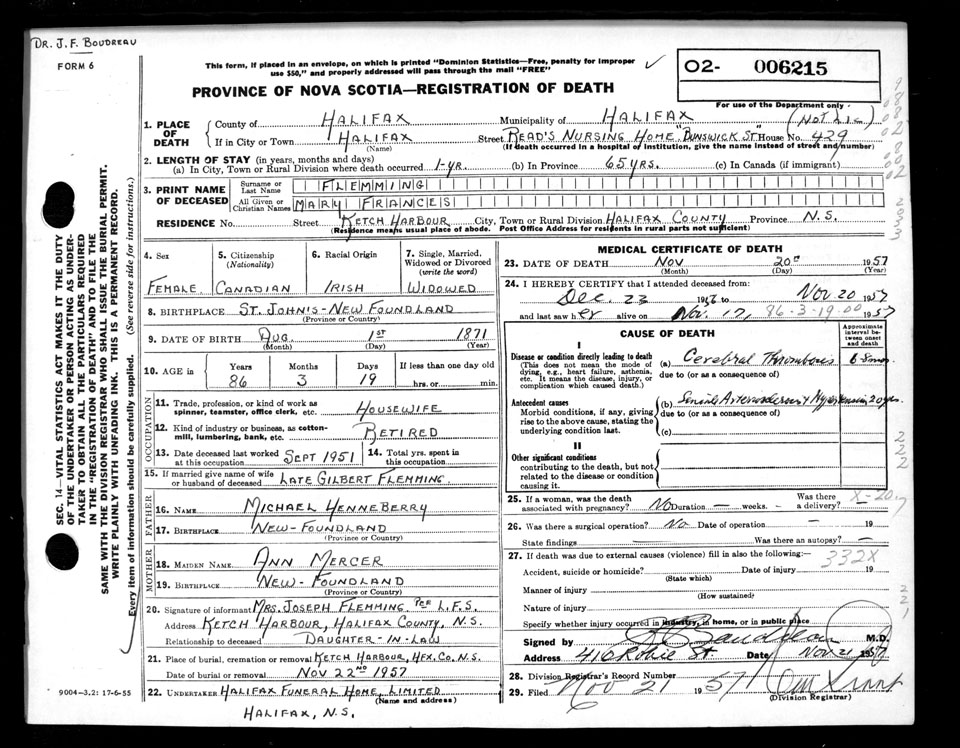 DR. J. F. BOUDREAU
FORM 6
This form, if placed in an envelope, on which is printed "Dominion Statistics—Free, penalty for improper use $50," and properly addressed will pass through the mail "FREE"
O2- 006215
PROVINCE OF NOVA SCOTIA—REGISTRATION OF DEATH
For use of the Department only
1. PLACE OF DEATH
County of HALIFAX Municipality of HALIFAX (NOT LIC)
If in City or Town HALIFAX Street READ'S NURSING HOME, "BUNSWICK ST" House No. 429
(Name) (If death occurred in a hospital or institution, give the name instead of street and number)
2. LENGTH OF STAY (in years, months and days)
(a) In City, Town or Rural Division where death occurred 1-YR. (b) In Province 65 YRS. (c) In Canada (if immigrant)
3. PRINT NAME OF DECEASED
Surname or Last Name FLEMMING
All Given or Christian Names MARY FRANCES
RESIDENCE No. Street KETCH HARBOUR City, Town or Rural Division HALIFAX COUNTY Province N.S.
(Residence means usual place of abode. Post Office Address for residents in rural parts not sufficient)
4. Sex
FEMALE
5. Citizenship (Nationality)
CANADIAN
6. Racial Origin
IRISH
7. Single, Married, Widowed or Divorced (write the word)
WIDOWED
8. BIRTHPLACE ST. JOHN'S - NEW FOUNDLAND
(Province or Country)
9. DATE OF BIRTH AUG. 1ST 1871
(Month) (Day) (Year)
10. AGE in Years Months Days If less than one day old
86 3 19 hrs. or min.
OCCUPATION
11. Trade, profession, or kind of work as spinner, teamster, office clerk, etc. HOUSEWIFE
12. Kind of industry or business, as cotton-mill, lumbering, bank, etc. RETIRED
13. Date deceased last worked at this occupation SEPT 1951
14. Total yrs. spent in this occupation
15. If married give name of wife or husband of deceased LATE GILBERT FLEMMING
FATHER
16. NAME MICHAEL HENNEBERRY
17. BIRTHPLACE NEW-FOUNDLAND
(Province or Country)
MOTHER
18. MAIDEN NAME ANN MERCER
19. BIRTHPLACE NEW-FOUNDLAND
(Province or Country)
20. Signature of informant MRS. JOSEPH FLEMMING PER L.F.S.
Address KETCH HARBOUR, HALIFAX COUNTY, N.S.
Relationship to deceased DAUGHTER-IN-LAW
21. Place of burial, cremation or removal KETCH HARBOUR, HFX. CO. N.S.
Date of burial or removal NOV 22ND 1957
22. UNDERTAKER HALIFAX FUNERAL HOME, LIMITED
(Name and address)
HALIFAX, N.S.
9004-3.2: 17-6-55
SEC. 14—VITAL STATISTICS ACT MAKES IT THE DUTY
OF THE UNDERTAKER OR PERSON ACTING AS UNDER-
TAKER TO OBTAIN ALL THE PARTICULARS REQUIRED
IN THE "REGISTRATION OF DEATH" AND TO FILE THE
SAME WITH THE DIVISION REGISTRAR WHO SHALL ISSUE THE BURIAL PERMIT.
WRITE PLAINLY WITH UNFADING INK. THIS IS A PERMANENT RECORD.
Every item of information should be carefully supplied. (See reverse side for instructions.)
MEDICAL CERTIFICATE OF DEATH
23. DATE OF DEATH NOV 20th 1957
(Month) (Day) (Year)
24. I HEREBY CERTIFY that I attended deceased from:
Dec. 23 to Nov 20 1957
and last saw her alive on Nov. 17, 86-3-19.00 1957
CAUSE OF DEATH
Approximate interval between onset and death
I
Disease or condition directly leading to death
(This does not mean the mode of dying, e.g., heart failure, asthenia, etc. It means the disease, injury, or complication which caused death.)
(a) Cerebral Thrombosis
due to (or as a consequence of)
Antecedent causes
Morbid conditions, if any, giving rise to the above cause, stating the underlying condition last.
(b) Senile Arteriosclerosis & Hypertension 20 yrs.
due to (or as a consequence of)
(c)
II
Other significant conditions
contributing to the death, but not related to the disease or condition causing it.
25. If a woman, was the death associated with pregnancy? No Duration — weeks. Was there a delivery? —
X-20
26. Was there a surgical operation? No Date of operation — 19
State findings — Was there an autopsy? —
27. If death was due to external causes (violence) fill in also the following:—
332X
Accident, suicide or homicide? Date of injury 19
(State which)
Manner of injury
(How sustained)
Nature of injury
Specify whether injury occurred in industry, in home, or in public place
Signed by M.D.
Address 410 Robie St Date Nov 21 1957
28. Division Registrar's Record Number
29. Filed Nov 21 1957
(Division Registrar)